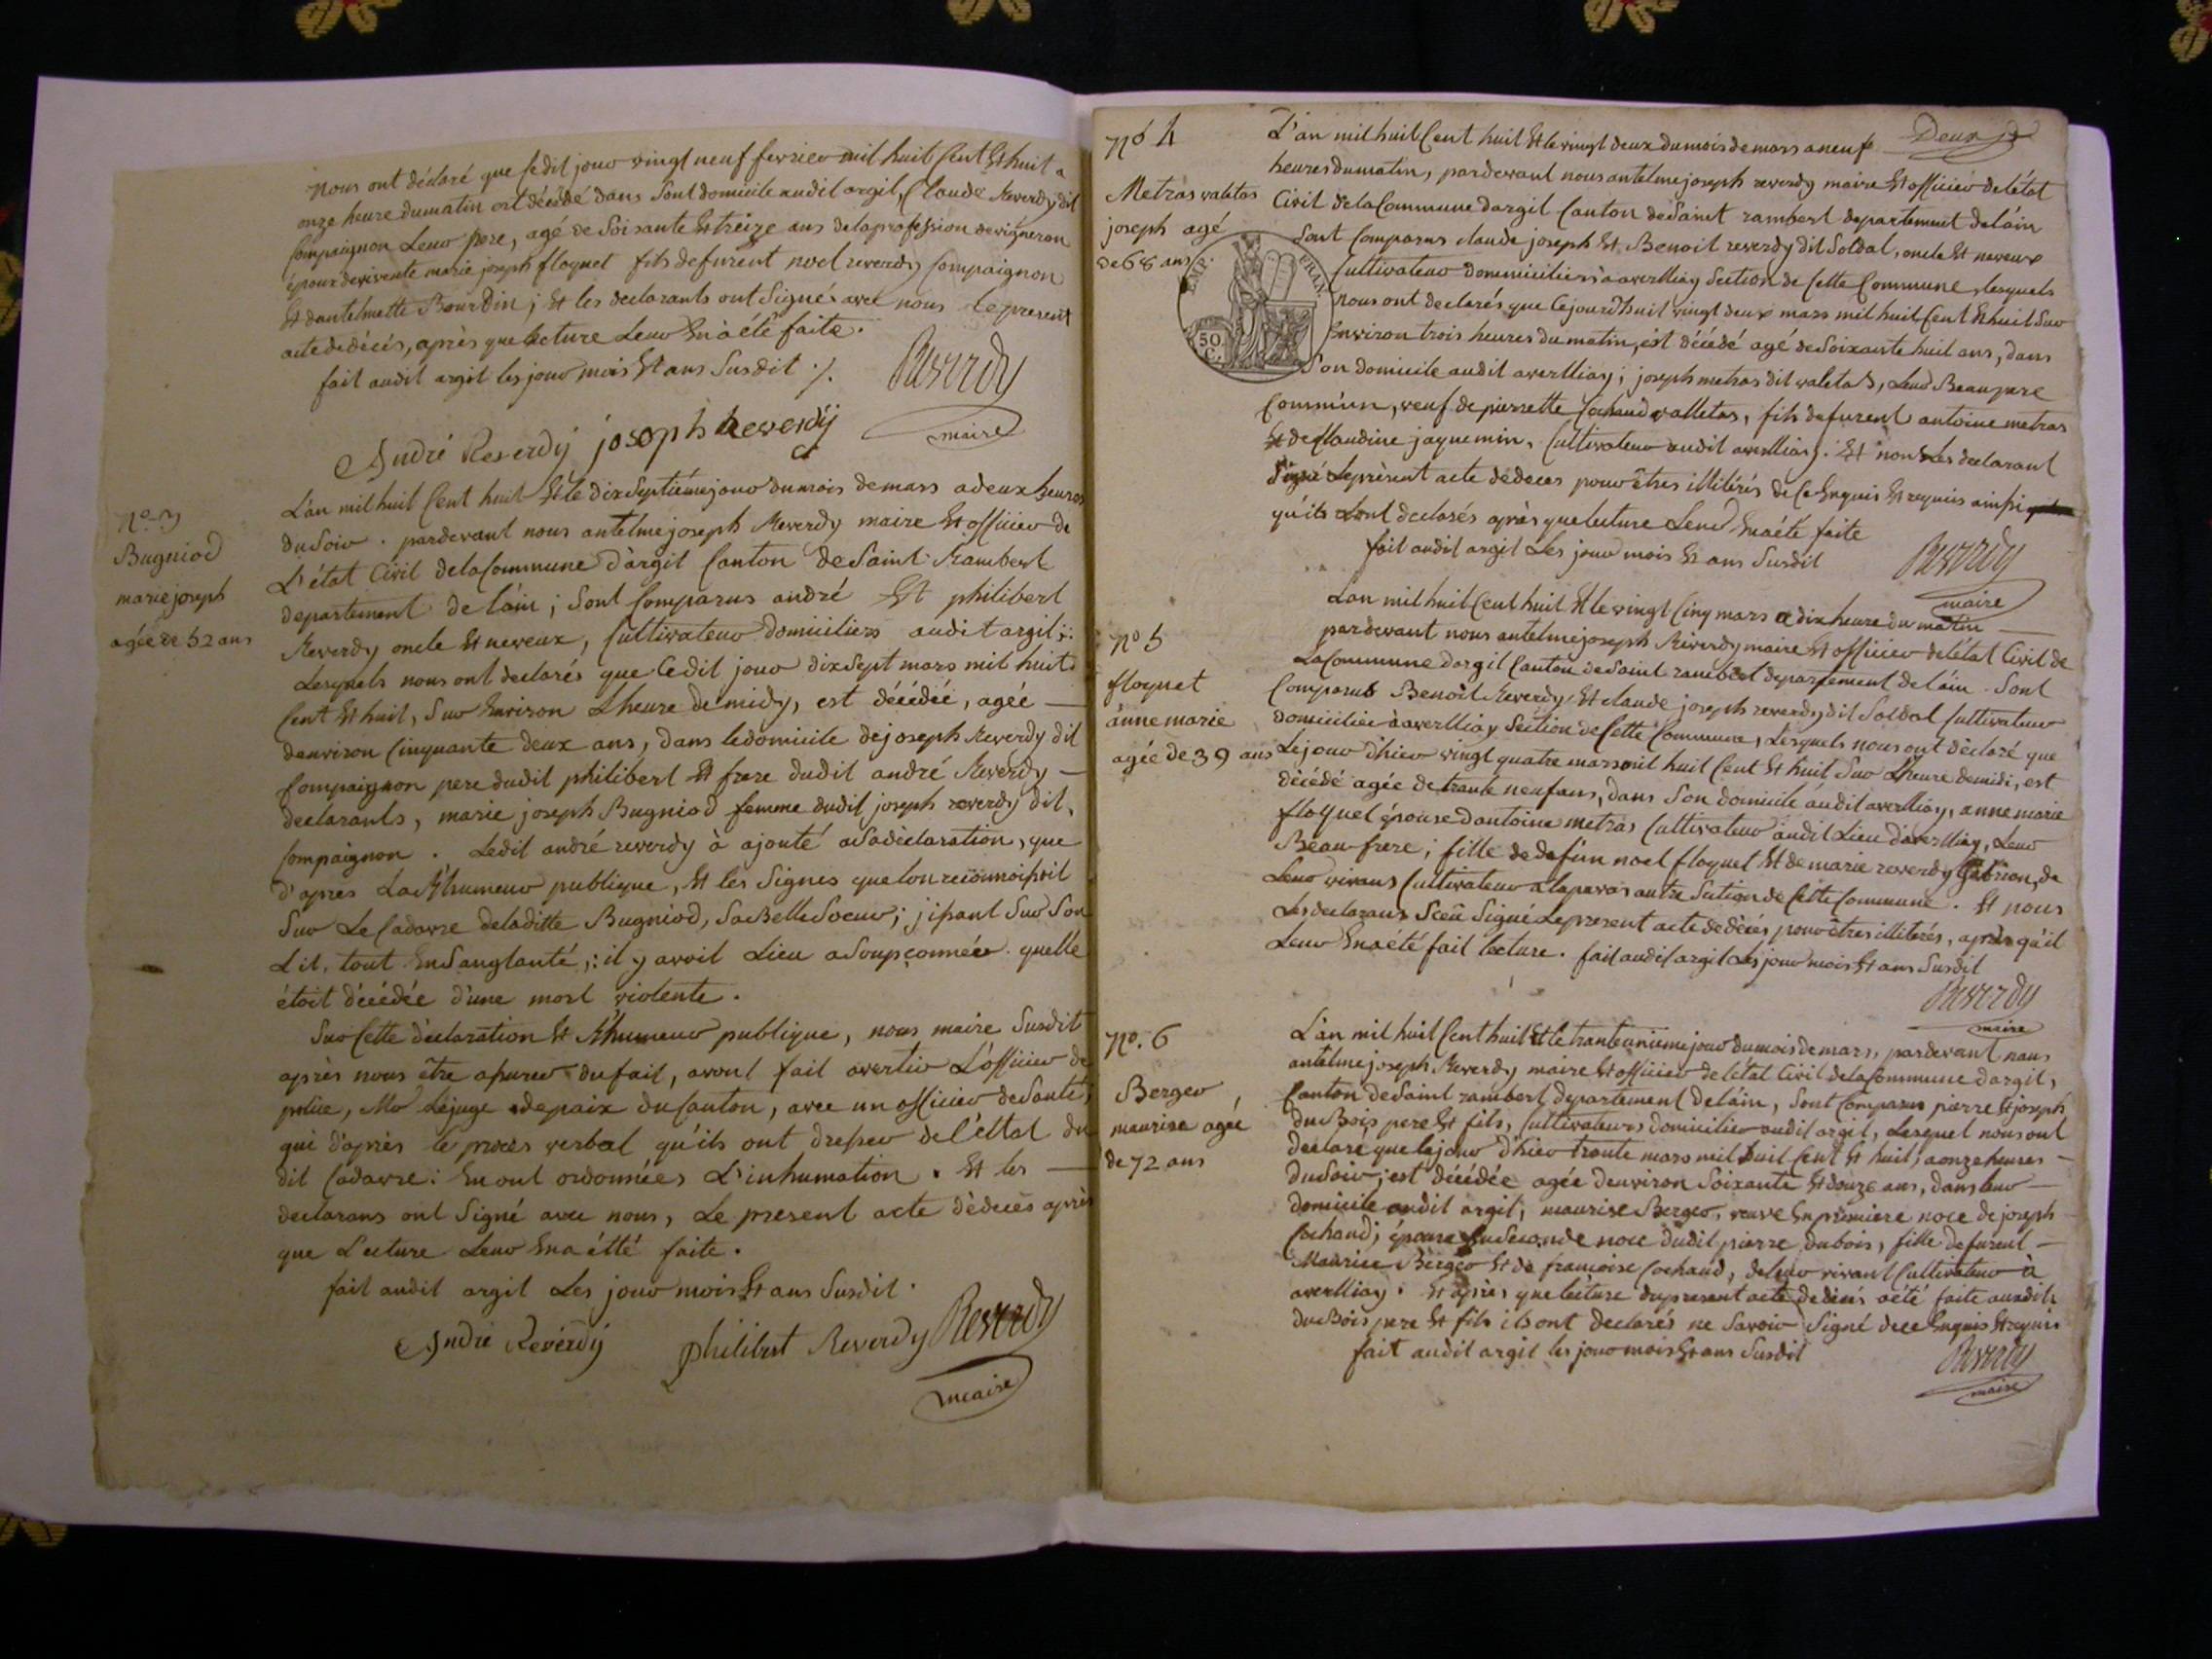 Nous ont déclaré que ledit jour vingt neuf fevrier mil huit Cent Et huit a
onze heure du matin est décédé dans Sont domicile audit argil, Claude Reverdy dit
Compaignon Leur pere, agé de Soisante Et treize ans de la profession de vigneron
époux de vivente marie joseph floquet fils de furent noel reverdy Compaignon
Et dantelmette Bourdin ; Et les declarants ont Signés avec nous le present
acte de décés, après que lecture Leur En à été faite.
fait audit argil les jour mois Et ans Susdit ./.
Reverdy
maire
André Reverdÿ joseph Reverdÿ
No. 3
Bugniod
marie joseph
agée de 52 ans
L'an mil huit Cent huit Et le dix Septiéme jour du mois de mars a deux heures
du Soir. pardevant nous antelme joseph Reverdy maire Et officier de
L'état Civil de la Commune d'argil Canton de Saint Rambert
departement de l'ain ; Sont Comparus andré Et philibert
Reverdy oncle Et neveux, Cultivateur domiciliers audit argil ;
Lesquels nous ont declarés que Cedit jour dix Sept mars mil huit
Cent Et huit, Sur Environ L'heure de midy, est décédée, agée —
denviron Cinquante deux ans, dans le domicile de joseph Reverdy dit
Compaignon pere dudit philibert Et frere dudit andré Reverdy —
declarants, marie joseph Bugniod femme dudit joseph reverdy dit,
Compaignon. Ledit andré reverdy à ajouté a Sa dèclaration, que
d'apres La Rhumeur publique, Et les Signes que lon reconnoissoit
Sur Le Cadavre de laditte Bugniod, Sa Belle Soeur ; jisant Sur Son
Lit, tout Ensanglanté, : il y avoit Lieu a Soupçonnéer quelle
étoit décédée d'une mort violente.
Sur Cette dèclaration Et Rhumeur publique, nous maire Susdit
après nous être assurer du fait, avont fait avertir L'officier de
police, Mr Lejuge de paix du Canton, avec un officier de Santé,
qui d'après le procès verbal qu'ils ont dresser de l'éttat du
dit Cadavre : En ont ordonnées L'inhumation. Et les —
declarans ont Signé avec nous, Le present acte dèdecès après
que Lecture Leur En a étté faite.
fait audit argil Les jour mois Et ans Susdit.
André Revérdÿ philibert Reverdy Reverdy
maire
Deux
No 4
Metras valetas
joseph agé
de 68 ans
EMP. FRAN.
50 C.
L'an mil huit Cent huit Et le vingt deux du mois de mars a neuf
heures du matin, pardevant nous antelme joseph reverdy maire Et officier de létat
Civil de la Commune dargil Canton de Sainct rambert departement de láin
Sont Comparus claude joseph Et Benoit reverdy dit Soldat, oncle Et neveux
Cultivateur domiciliers a averlliay Section de Cette Commune, lesquels
nous ont declarés que Cejourd'huit vingt deux mars mil huit Cent Et huit Sur
Environ trois heures du matin, est décédé agé de Soixante huit ans, dans
Son domicile audit averlliay ; joseph metras dit valetas, Leur Beau pere
Commun, veuf de pierrette Cochand valletas, fils de furent antoine metras
Et de Claudine jaquemin, Cultivateur audit averlliay. Et non Les declarant
Signé Le prèsent acte dèdeces pour êtres illitérés de Ce Enquis Et requis ainssi
qu'ils L'ont declarés après que lecture Leur En a été faite
fait audit argil Les jour mois Et ans Susdit
Reverdy
maire
No 5
floquet
anne marie
agée de 39 ans
L'an mil huit Cent huit Et le vingt Cinq mars a dix heure du matin —
pardevant nous antelme joseph Reverdy maire Et officier de létat Civil de
La Commune dargil Canton de Saint rambert departement de láin. Sont
Comparus Benoît Reverdy Et claude joseph reverdy dit Soldat Cultivateur
domiciliée à averlliay Section de Cette Commune, Lesquels nous ont déclaré que
Le jour d'hier vingt quatre mars mil huit Cent Et huit, Sur L'heure de midi, est
décédé agée de trante neuf ans, dans Son domicile audit averlliay, anne marie
floquet épouse d'antoine metras Cultivateur audit Lieu d'averlliay, Leur
Beau-frere ; fille de defûn noel floquet Et de marie reverdy Gabrion, de
Leur vivans Cultivateur a laparas autre Section de Cette Commune. Et nous
Les declarans Sceû Signé Le present acte de décés pour êtres illiterés, après qu'il
Leur En a été fait lecture. fait audit argil Les jour mois Et ans Susdit
Reverdy
maire
No. 6
Berger,
maurise agée
de 72 ans
L'an mil huit Cent huit Et le trante unième jour du mois de mars, pardevant nous
antelme joseph Reverdy maire Et officier de létat Civil de la Commune dargil,
Canton de Saint rambert departement de láin, Sont Comparus pierre Et joseph
du Bois pere Et fils, Cultivateurs domicilier audit argil, Lesquel nous ont
declaré que le jour d'hier trante mars mil huit Cent Et huit, a onze heures —
du Soir, est décédée agée denviron Soixante Et douze ans, dans leur —
domicile audit argil, maurise Berger, veuve En premiere noce de joseph
Cochand ; épouse En Seconde noce dudit pierre dubois, fille de furent —
Maurice Berger Et de francoise Cochand, de leur vivant Cultivateur à
averlliay. Et après que lecture du present acte de décés a été faite auxdits
du Bois pere Et fils ils ont declarés ne Savoir Signé de ce Enquis Et requis
fait audit argil les jour mois Et ans Susdit
Reverdy
maire